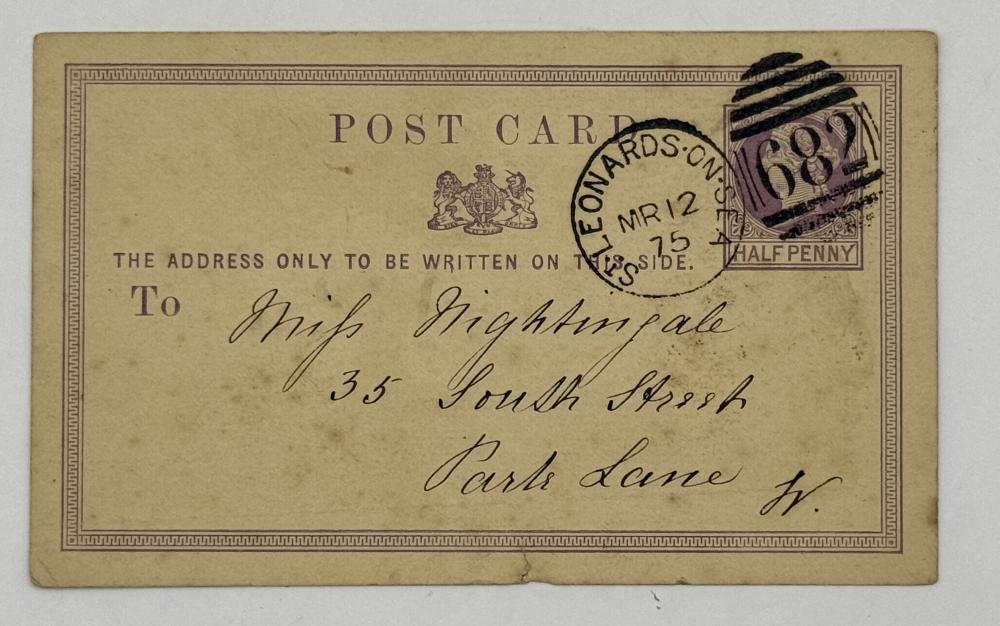 POST CARD
ST. LEONARDS·ON·SEA
MR 12
75
682
HALFPENNY
THE ADDRESS ONLY TO BE WRITTEN ON THIS SIDE.
To
Miss Nightingale
35 South Street
Park Lane W.